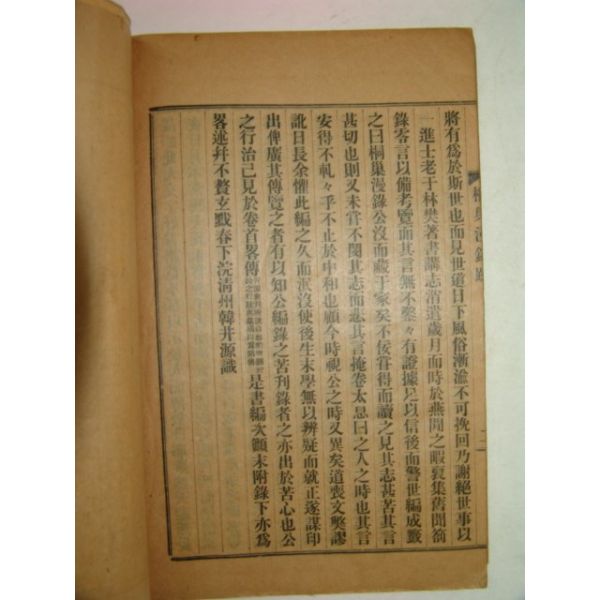 桐巢漫錄跋
二
將有爲於斯世也而見世道日下風俗漸渝不可挽回乃謝絕世事以
一進士老于林樊著書講志消遣歲月而時於燕閒之暇裒集舊聞箚
錄零言以備考覽而其言無不鑿々有證據足以信後而警世編成籤
之曰桐巢漫錄公沒而藏于家矣不佞甞得而讀之見其志甚苦其言
甚切也則又未甞不悶其志而悲其言掩卷太息曰之人之時也其言
安得不軋々乎不止於中和也顧今時視公之時又異矣道喪文獘謬
訛日長余懼此編之久而泯沒使後生末學無以辨疑而就正遂謀印
出俾廣其傳覽之者有以知公編錄之苦刊錄者之亦出於苦心也公
之行治已見於卷首畧傳
是書編次顚末附錄下亦爲
畧述幷不贅玄黓春下浣淸州韓井源識